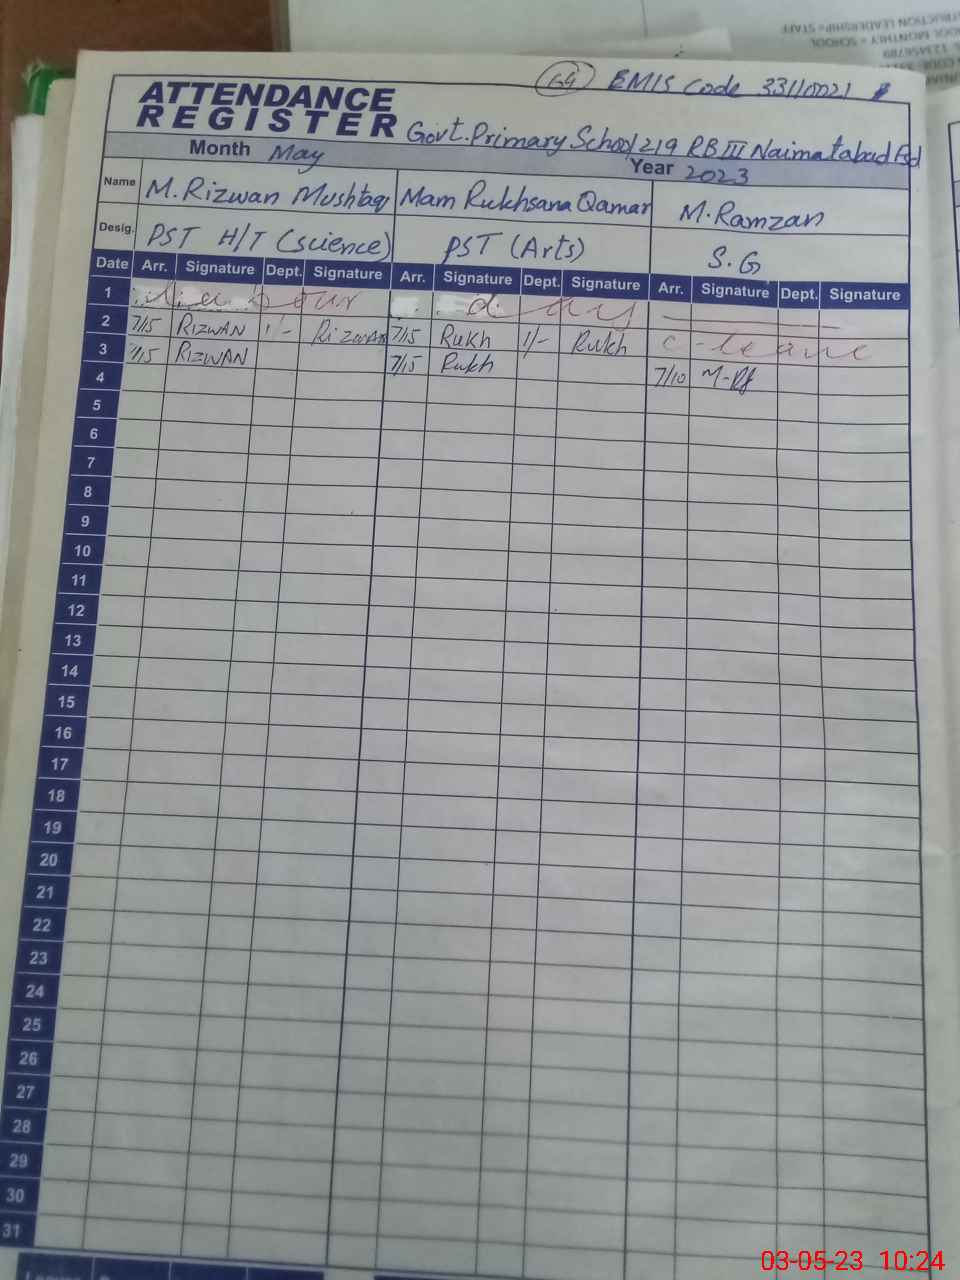 64 EMIS Code 33110021
ATTENDANCE
REGISTER Govt. Primary School 219 RB III Naimatabad Fsd
Month May Year 2023
Name M. Rizwan Mushtaq Mam Rukhsana Qamar M. Ramzan
Desig. PST H/T (science) PST (Arts) S.G
Date Arr. Signature Dept. Signature Arr. Signature Dept. Signature Arr. Signature Dept. Signature
1 Labour day
2 7/15 RIZWAN 1/- RIZWAN 7/15 Rukh 1/- Rukh C-leave
3 7/15 RIZWAN 7/15 Rukh 7/10
4
5
6
7
8
9
10
11
12
13
14
15
16
17
18
19
20
21
22
23
24
25
26
27
28
29
30
31
03-05-23 10:24